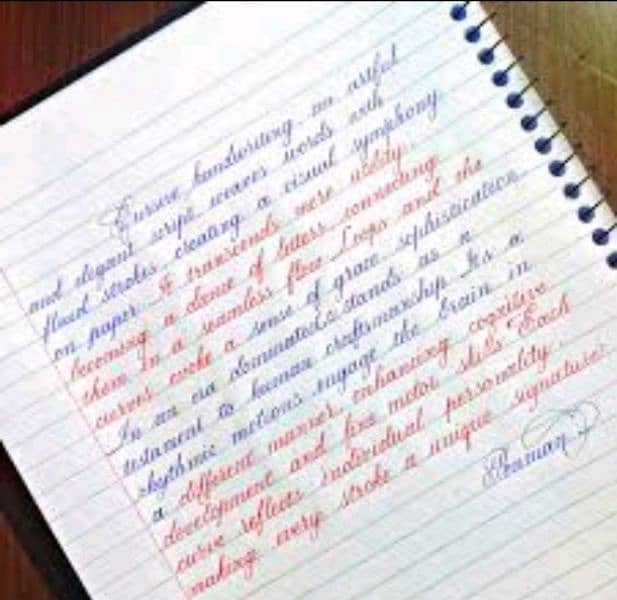 Cursive handwriting, an artful
and elegant script, weaves words with
fluid strokes, creating a visual symphony
on paper. It transcends mere utility,
becoming a dance of letters connecting
them in a seamless flow. Loops and the
curves evoke a sense of grace, sophistication
In an era dominated, stands as a
testament to human craftsmanship. Its a
rhythmic motions engage the brain in
a different manner, enhancing cognitive
development and fine motor skills. Each
curve reflects individual personality,
making every stroke a unique signature.